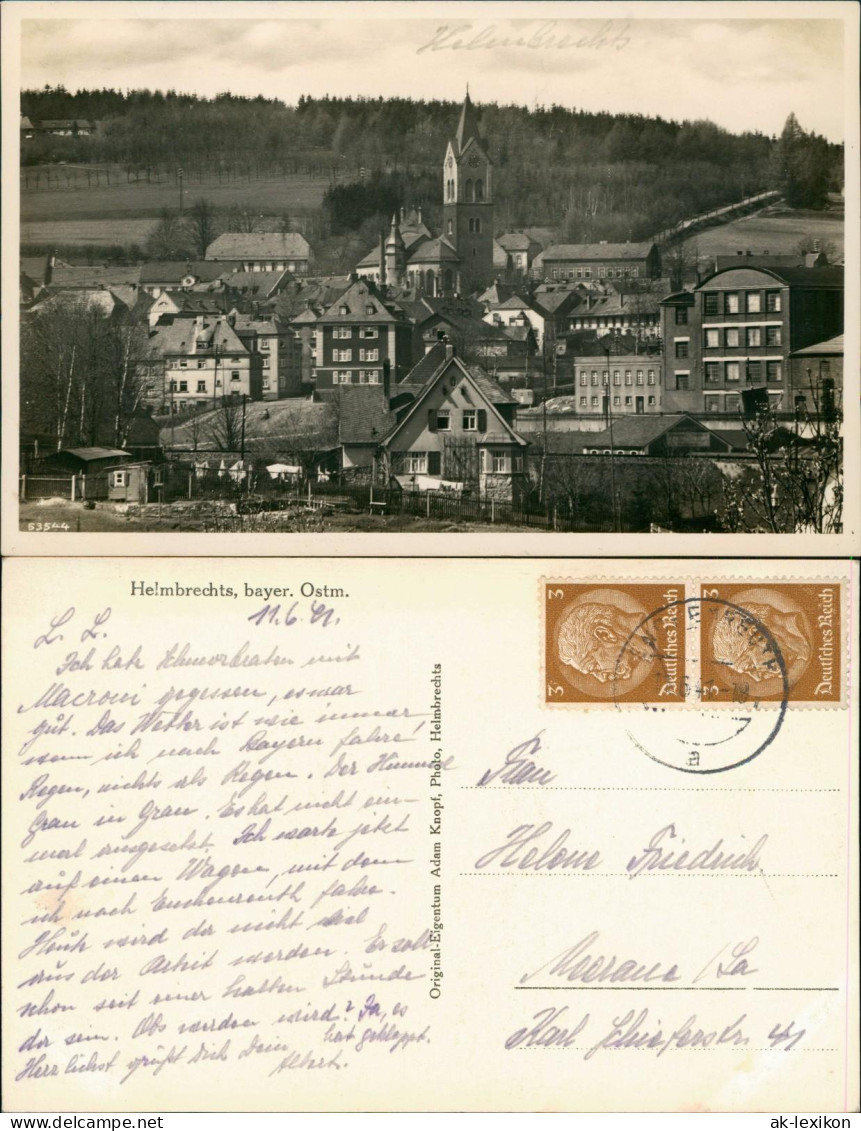 Helmbrechts.
53544
Helmbrechts, bayer. Ostm.
11.6.41.
L. L.
Ich habe Schmorbraten mit
Macroni gegessen, es war
gut. Das Wetter ist wie immer
wenn ich nach Bayern fahre!
Regen, nichts als Regen. Der Himmel
Grau in Grau. Es hat nicht ein-
mal ausgesetzt. Ich warte jetzt
auf einen Wagen, mit dem
ich nach Enchenreuth fahre.
Heute wird da nicht viel
aus der Arbeit werden. Er soll
schon seit einer halben Stunde
da sein. Obs werden wird? Ja, es
hat geklappt.
Herzlichst grüßt Dich Dein
Albert.
Original-Eigentum Adam Knopf, Photo, Helmbrechts
3 3 Deutsches Reich
3 3 Deutsches Reich
a
Frau
Helene Friedrich
Meerane /Sa
Karl Schieferstr. 41
ak-lexikon